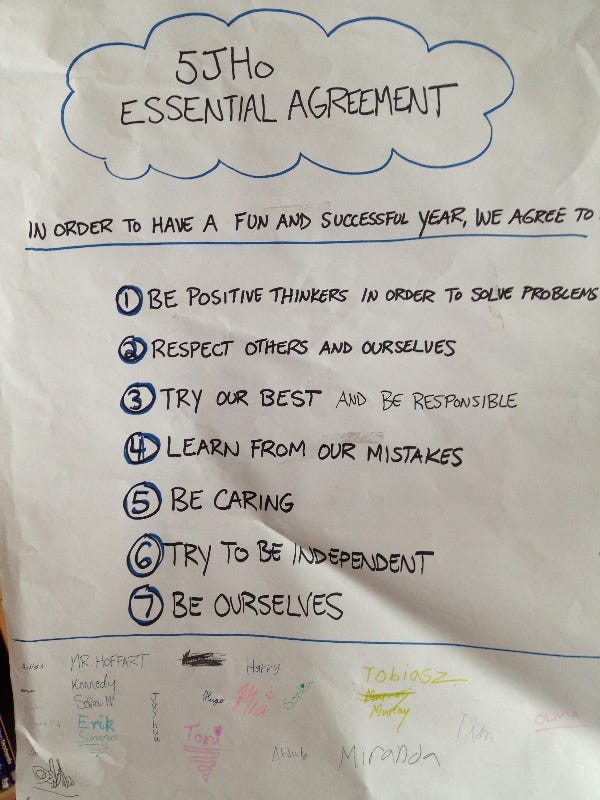 5JHo
ESSENTIAL AGREEMENT
IN ORDER TO HAVE A FUN AND SUCCESSFUL YEAR, WE AGREE TO
1 BE POSITIVE THINKERS IN ORDER TO SOLVE PROBLEMS
2 RESPECT OTHERS AND OURSELVES
3 TRY OUR BEST AND BE RESPONSIBLE
4 LEARN FROM OUR MISTAKES
5 BE CARING
6 TRY TO BE INDEPENDENT
7 BE OURSELVES
MR. HOFFART
Harry
Kennedy
Tobiasz
Hugo
Mia
Murray
Erik
Simonas
Toni
Tian
OLIVIA
Miranda